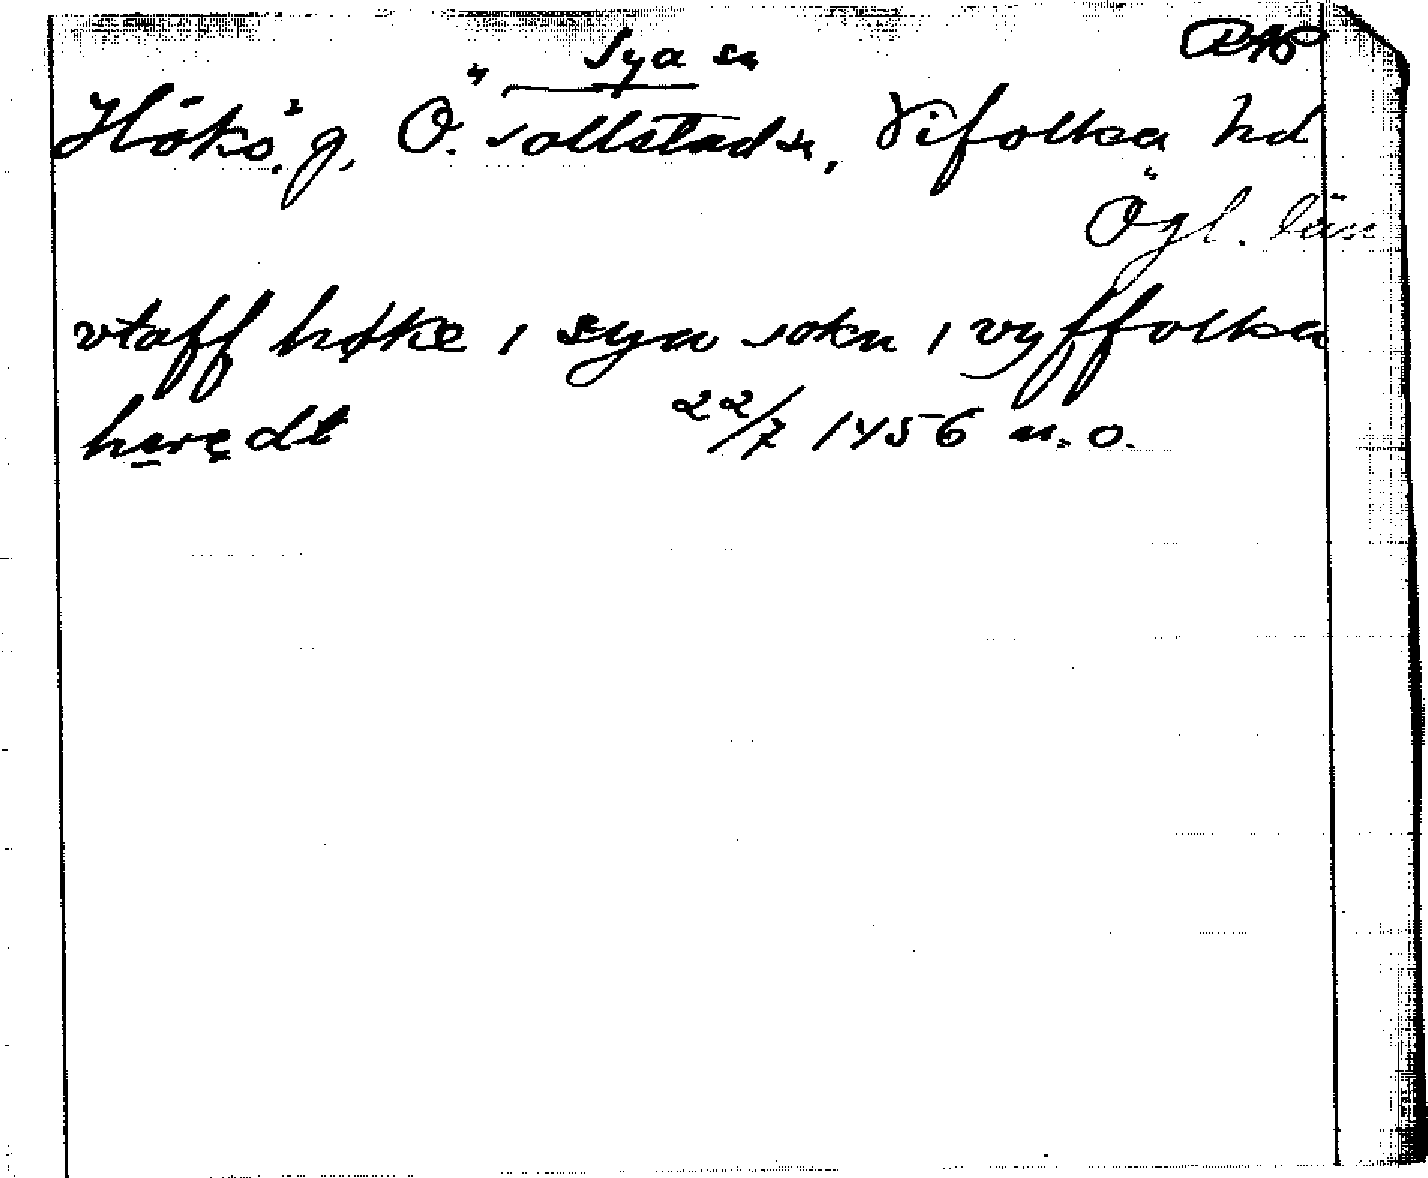 Sya sn
RAP
Hökö, g, Ö. Tollstad sn, Vifolka hd
Ögl. län
vtaff høke i sya sokn i vyffolka
heredt 22/7 1456 u. o.